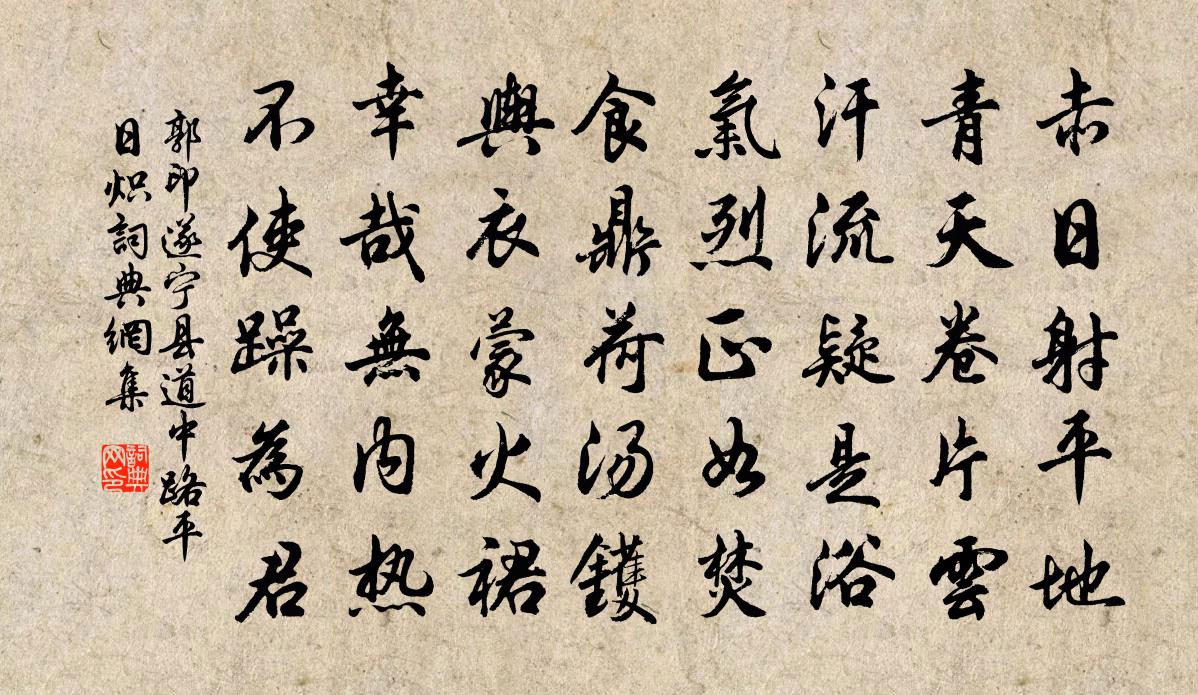 赤日射平地
青天卷片雲
汗流疑是浴
氣烈正如焚
食鼎荷湯鑊
輿衣蒙火裙
幸哉無内热
不使躁為君
郭印遂宁县道中路平
日炽詞典網集
詞典
网印